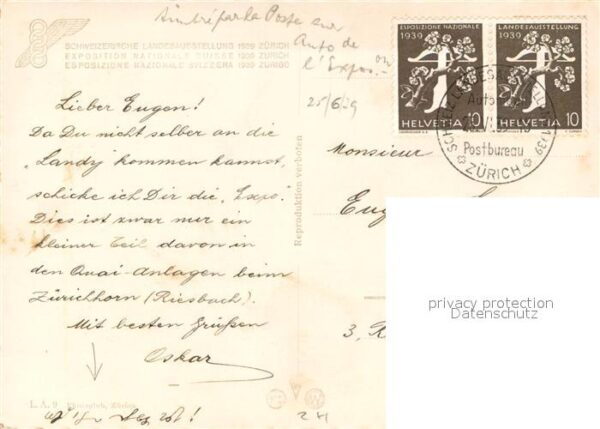 Timbré par la Poste sur
Auto de
l'Expo.
25/6/39
SCHWEIZERISCHE LANDESAUSSTELLUNG 1939 ZÜRICH
EXPOSITION NATIONALE SUISSE 1939 ZURICH
ESPOSIZIONE NAZIONALE SVIZZERA 1939 ZURIGO
ESPOSIZIONE NAZIONALE
1939
HELVETIA 10
LANDESAUSSTELLUNG
1939
HELVETIA 10
SCHWEIZ. LANDESAUSSTELLUNG 1939
Postbureau
ZÜRICH
Lieber Eugen!
Da Du nicht selber an die
"Landy" kommen kannst,
schicke ich Dir die "Expo".
Dies ist zwar nur ein
kleiner Teil davon in
den Quai-Anlagen beim
Zürichhorn (Riesbach).
Mit besten Grüßen
Oskar
Reproduktion verboten
Monsieur
Eug
3, R
privacy protection
Datenschutz
L. A. 9 Photoglob, Zürich